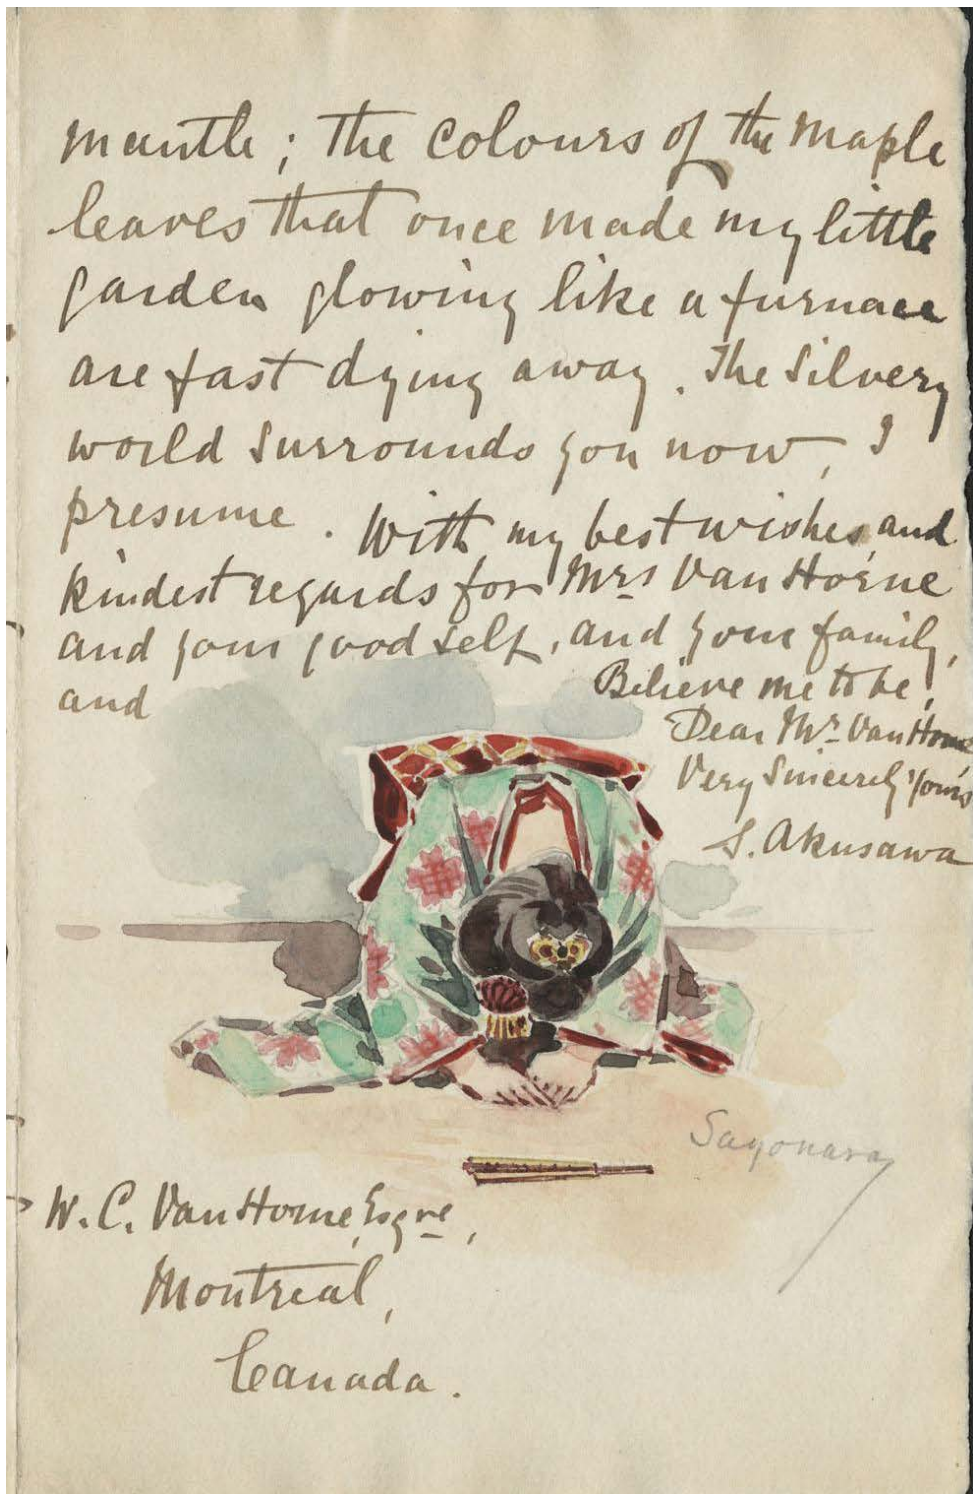 mantle; the colours of the maple
leaves that once made my little
garden glowing like a furnace
are fast dying away. The Silvery
world surrounds you now, I
presume. With my best wishes and
kindest regards for Mrs Van Horne
and your good self, and your family,
and
Believe me to be,
Dear Mr. Van Horne
Very Sincerely Yours
S. Akusawa
Sayonara
W. C. Van Horne, Esqre,
Montreal,
Canada.